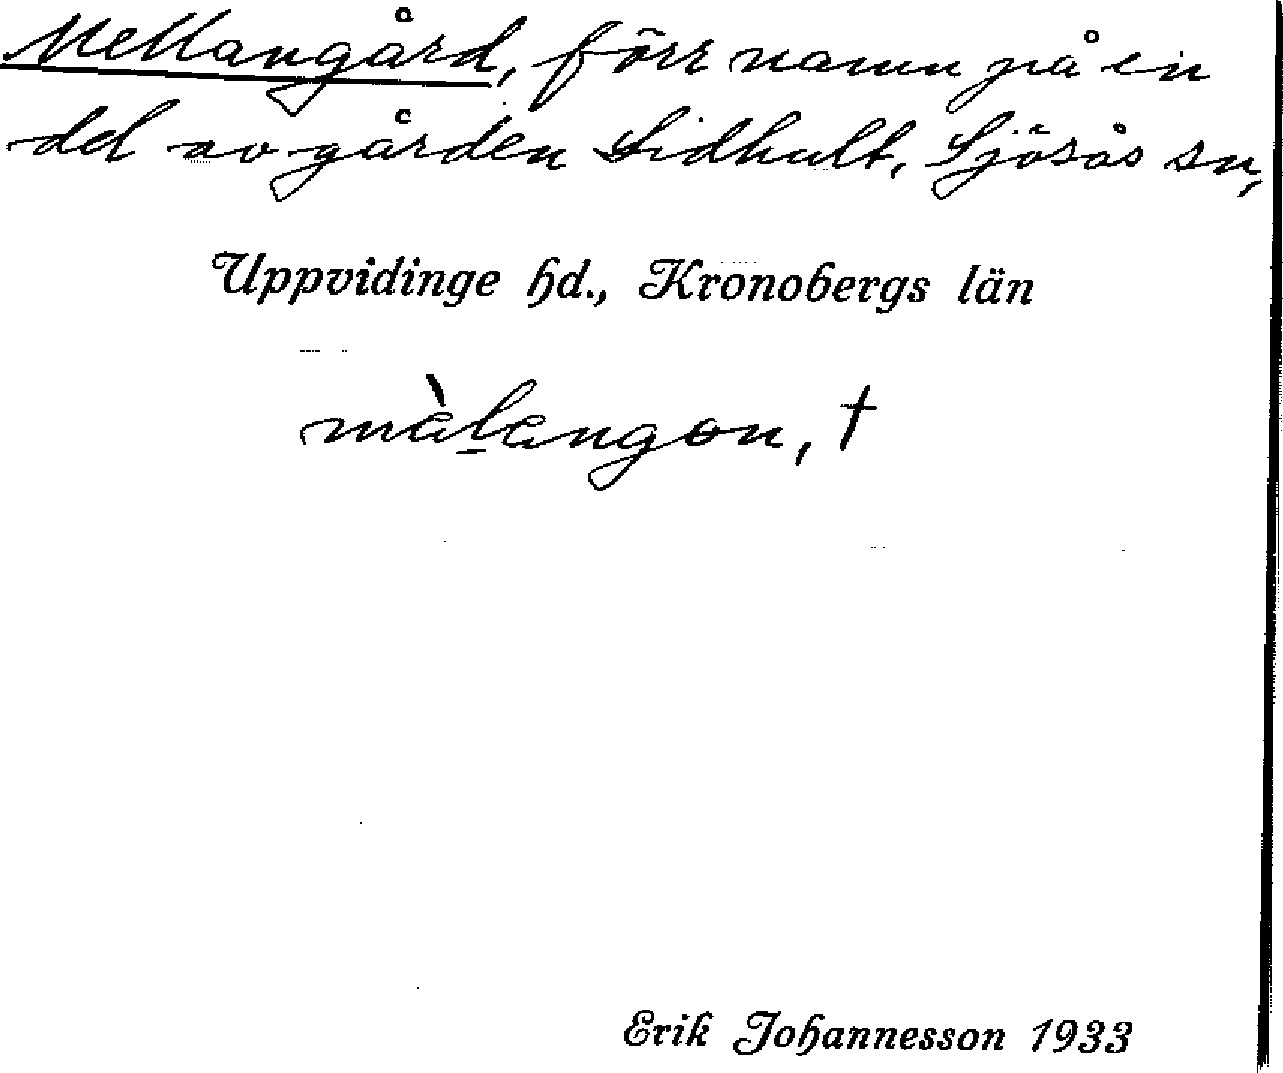 Mellangård, förr namn på en
del av gården Sidhult, Sjösås sn,
Uppvidinge hd., Kronobergs län
màl̠angon, †
Erik Johannesson 1933